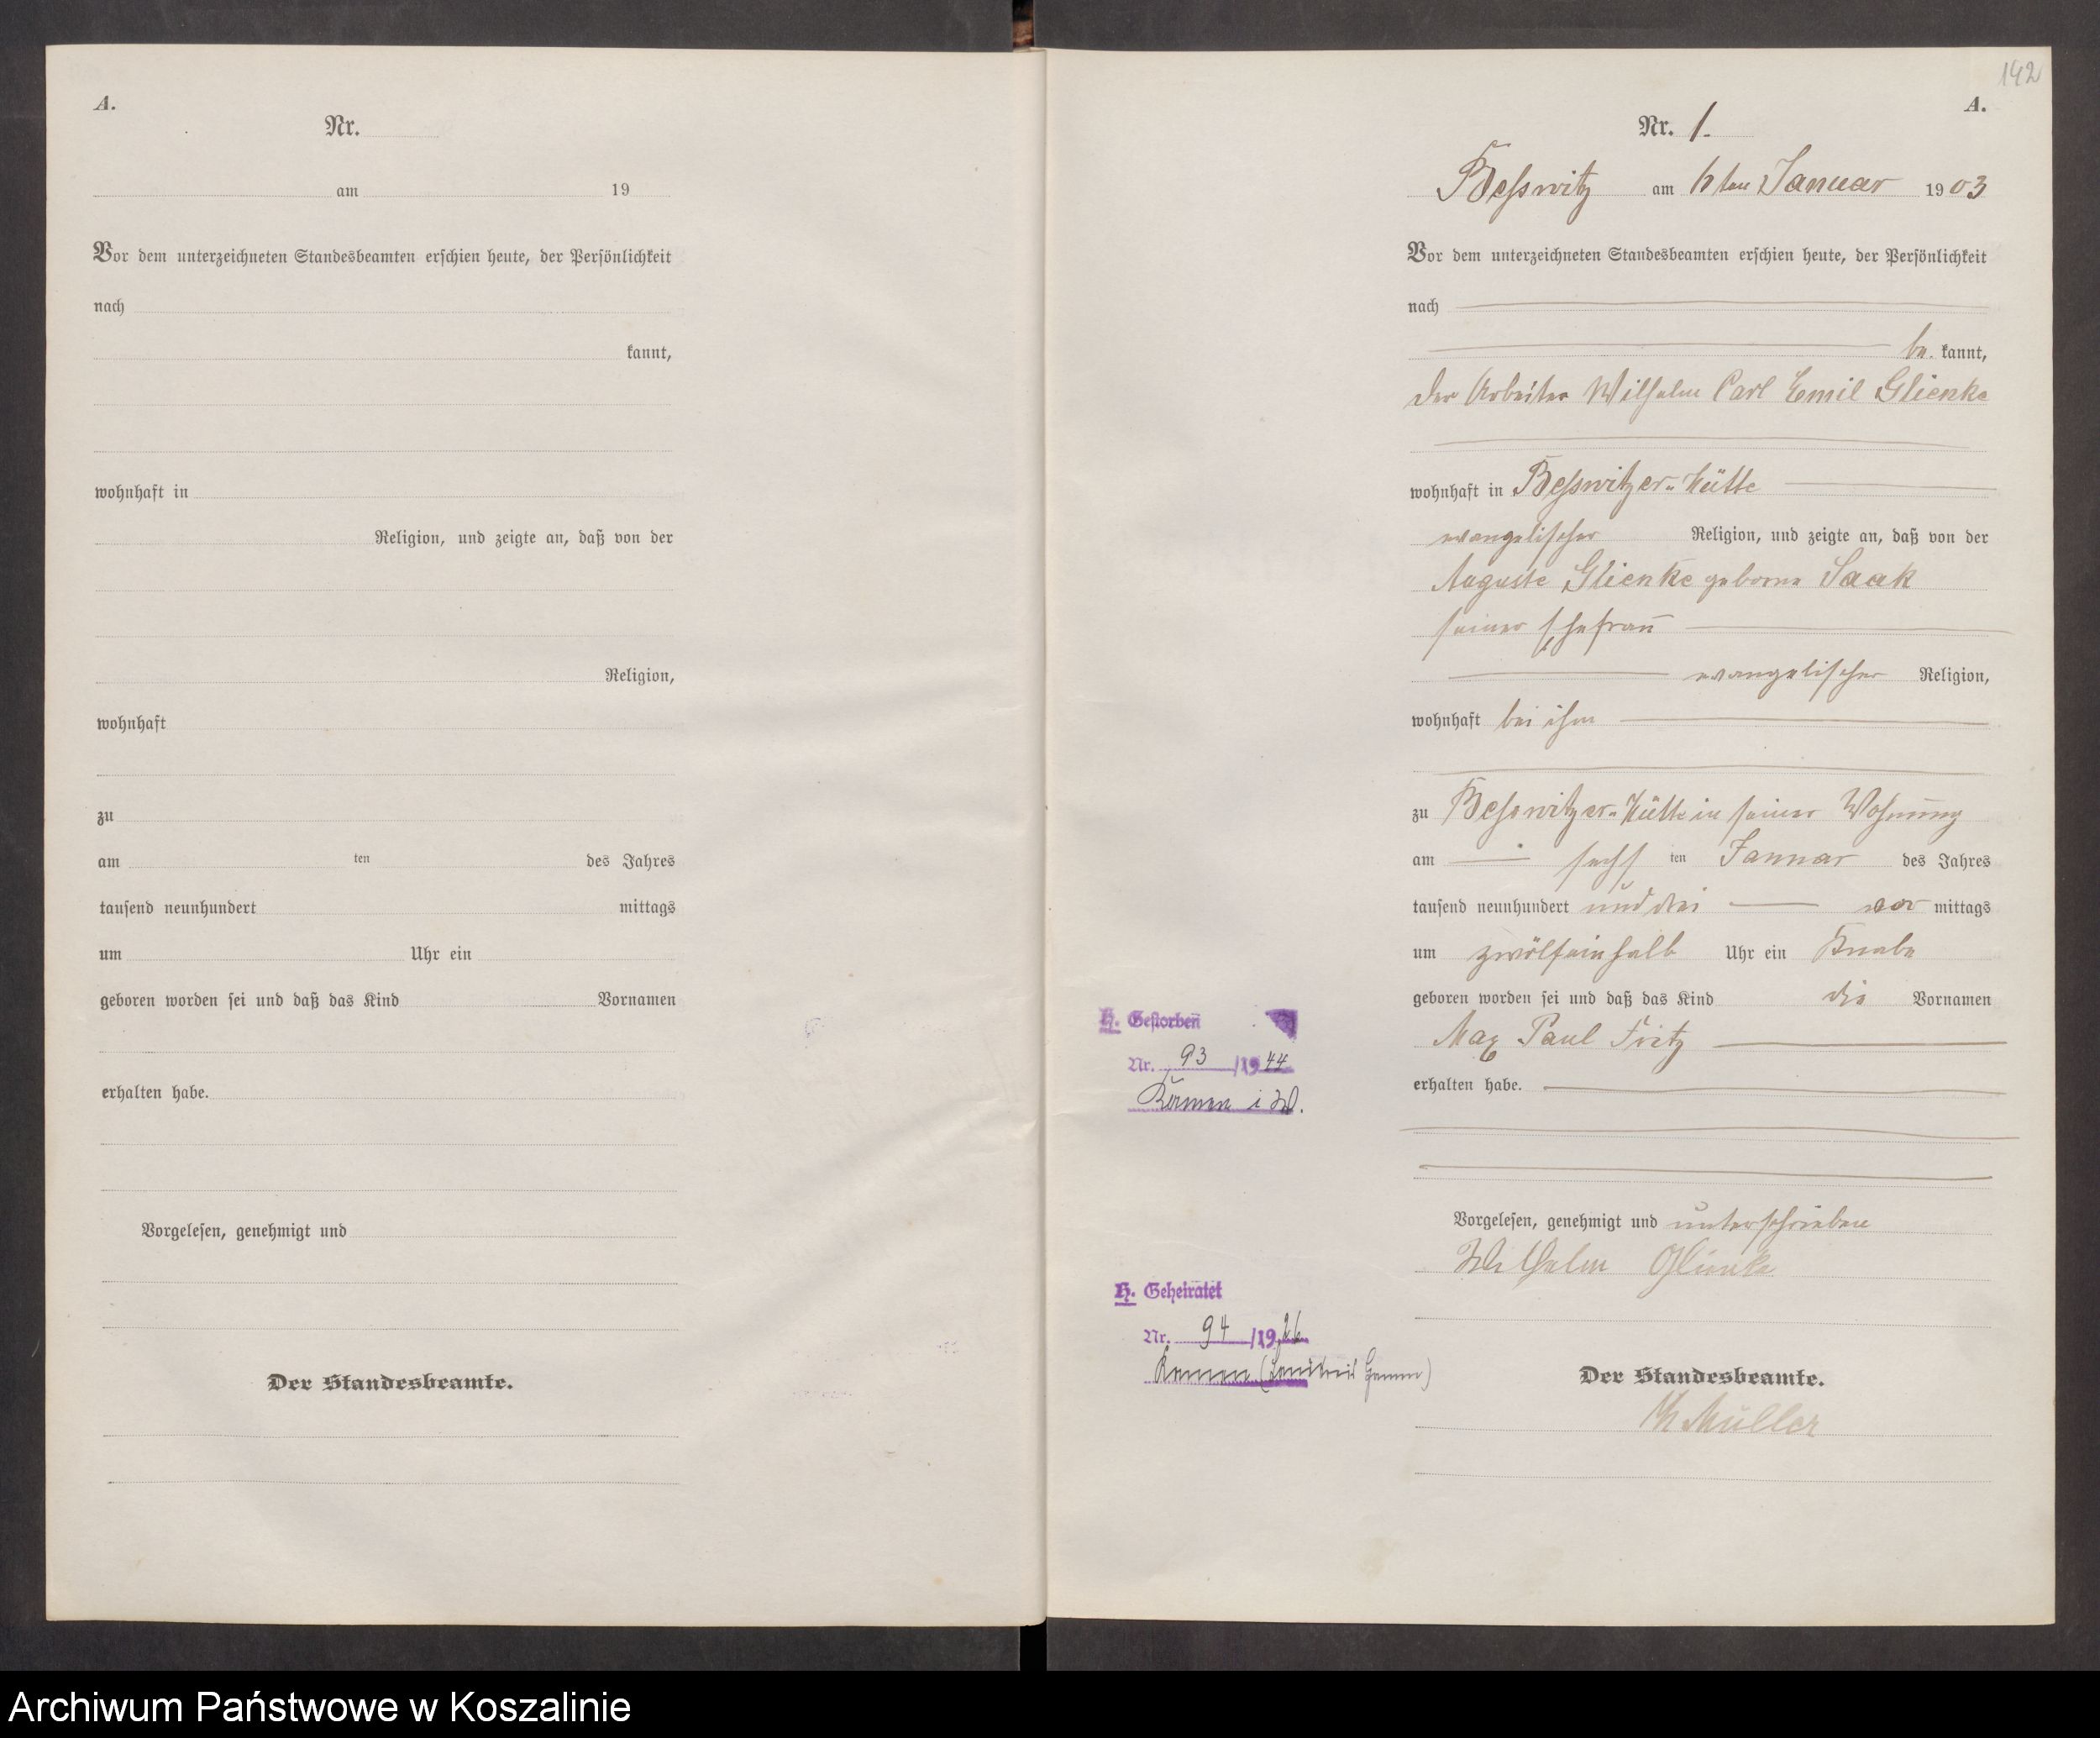 A.
Nr.
am 19
Vor dem unterzeichneten Standesbeamten erschien heute, der Persönlichkeit
nach
kannt,
wohnhaft in
Religion, und zeigte an, daß von der
Religion,
wohnhaft
zu
am ten des Jahres
tausend neunhundert mittags
um Uhr ein
geboren worden sei und daß das Kind Vornamen
erhalten habe.
Vorgelesen, genehmigt und
Der Standesbeamte.
142
A.
Nr. 1.
Besswitz am 6ten Januar 1903
Vor dem unterzeichneten Standesbeamten erschien heute, der Persönlichkeit
nach
be kannt,
der Arbeiter Wilhelm Carl Emil Glienke
wohnhaft in Besswitzer-Hütte
evangelischer Religion, und zeigte an, daß von der
Auguste Glienke geborne Saak
seiner Ehefrau
evangelischer Religion,
wohnhaft bei ihm
zu Besswitzer-Hütte in seiner Wohnung
am sechs ten Januar des Jahres
tausend neunhundert und drei vor mittags
um zwölfeinhalb Uhr ein Knabe
geboren worden sei und daß das Kind die Vornamen
Max Paul Fritz
erhalten habe.
Vorgelesen, genehmigt und unterschrieben
Wilhelm Glienke
Der Standesbeamte.
Müller
H. Gestorben
Nr. 93 /1944
Kamen i. W.
H. Geheiratet
Nr. 94 /1926
Kamen (Landkreis Hamm)
Archiwum Państwowe w Koszalinie